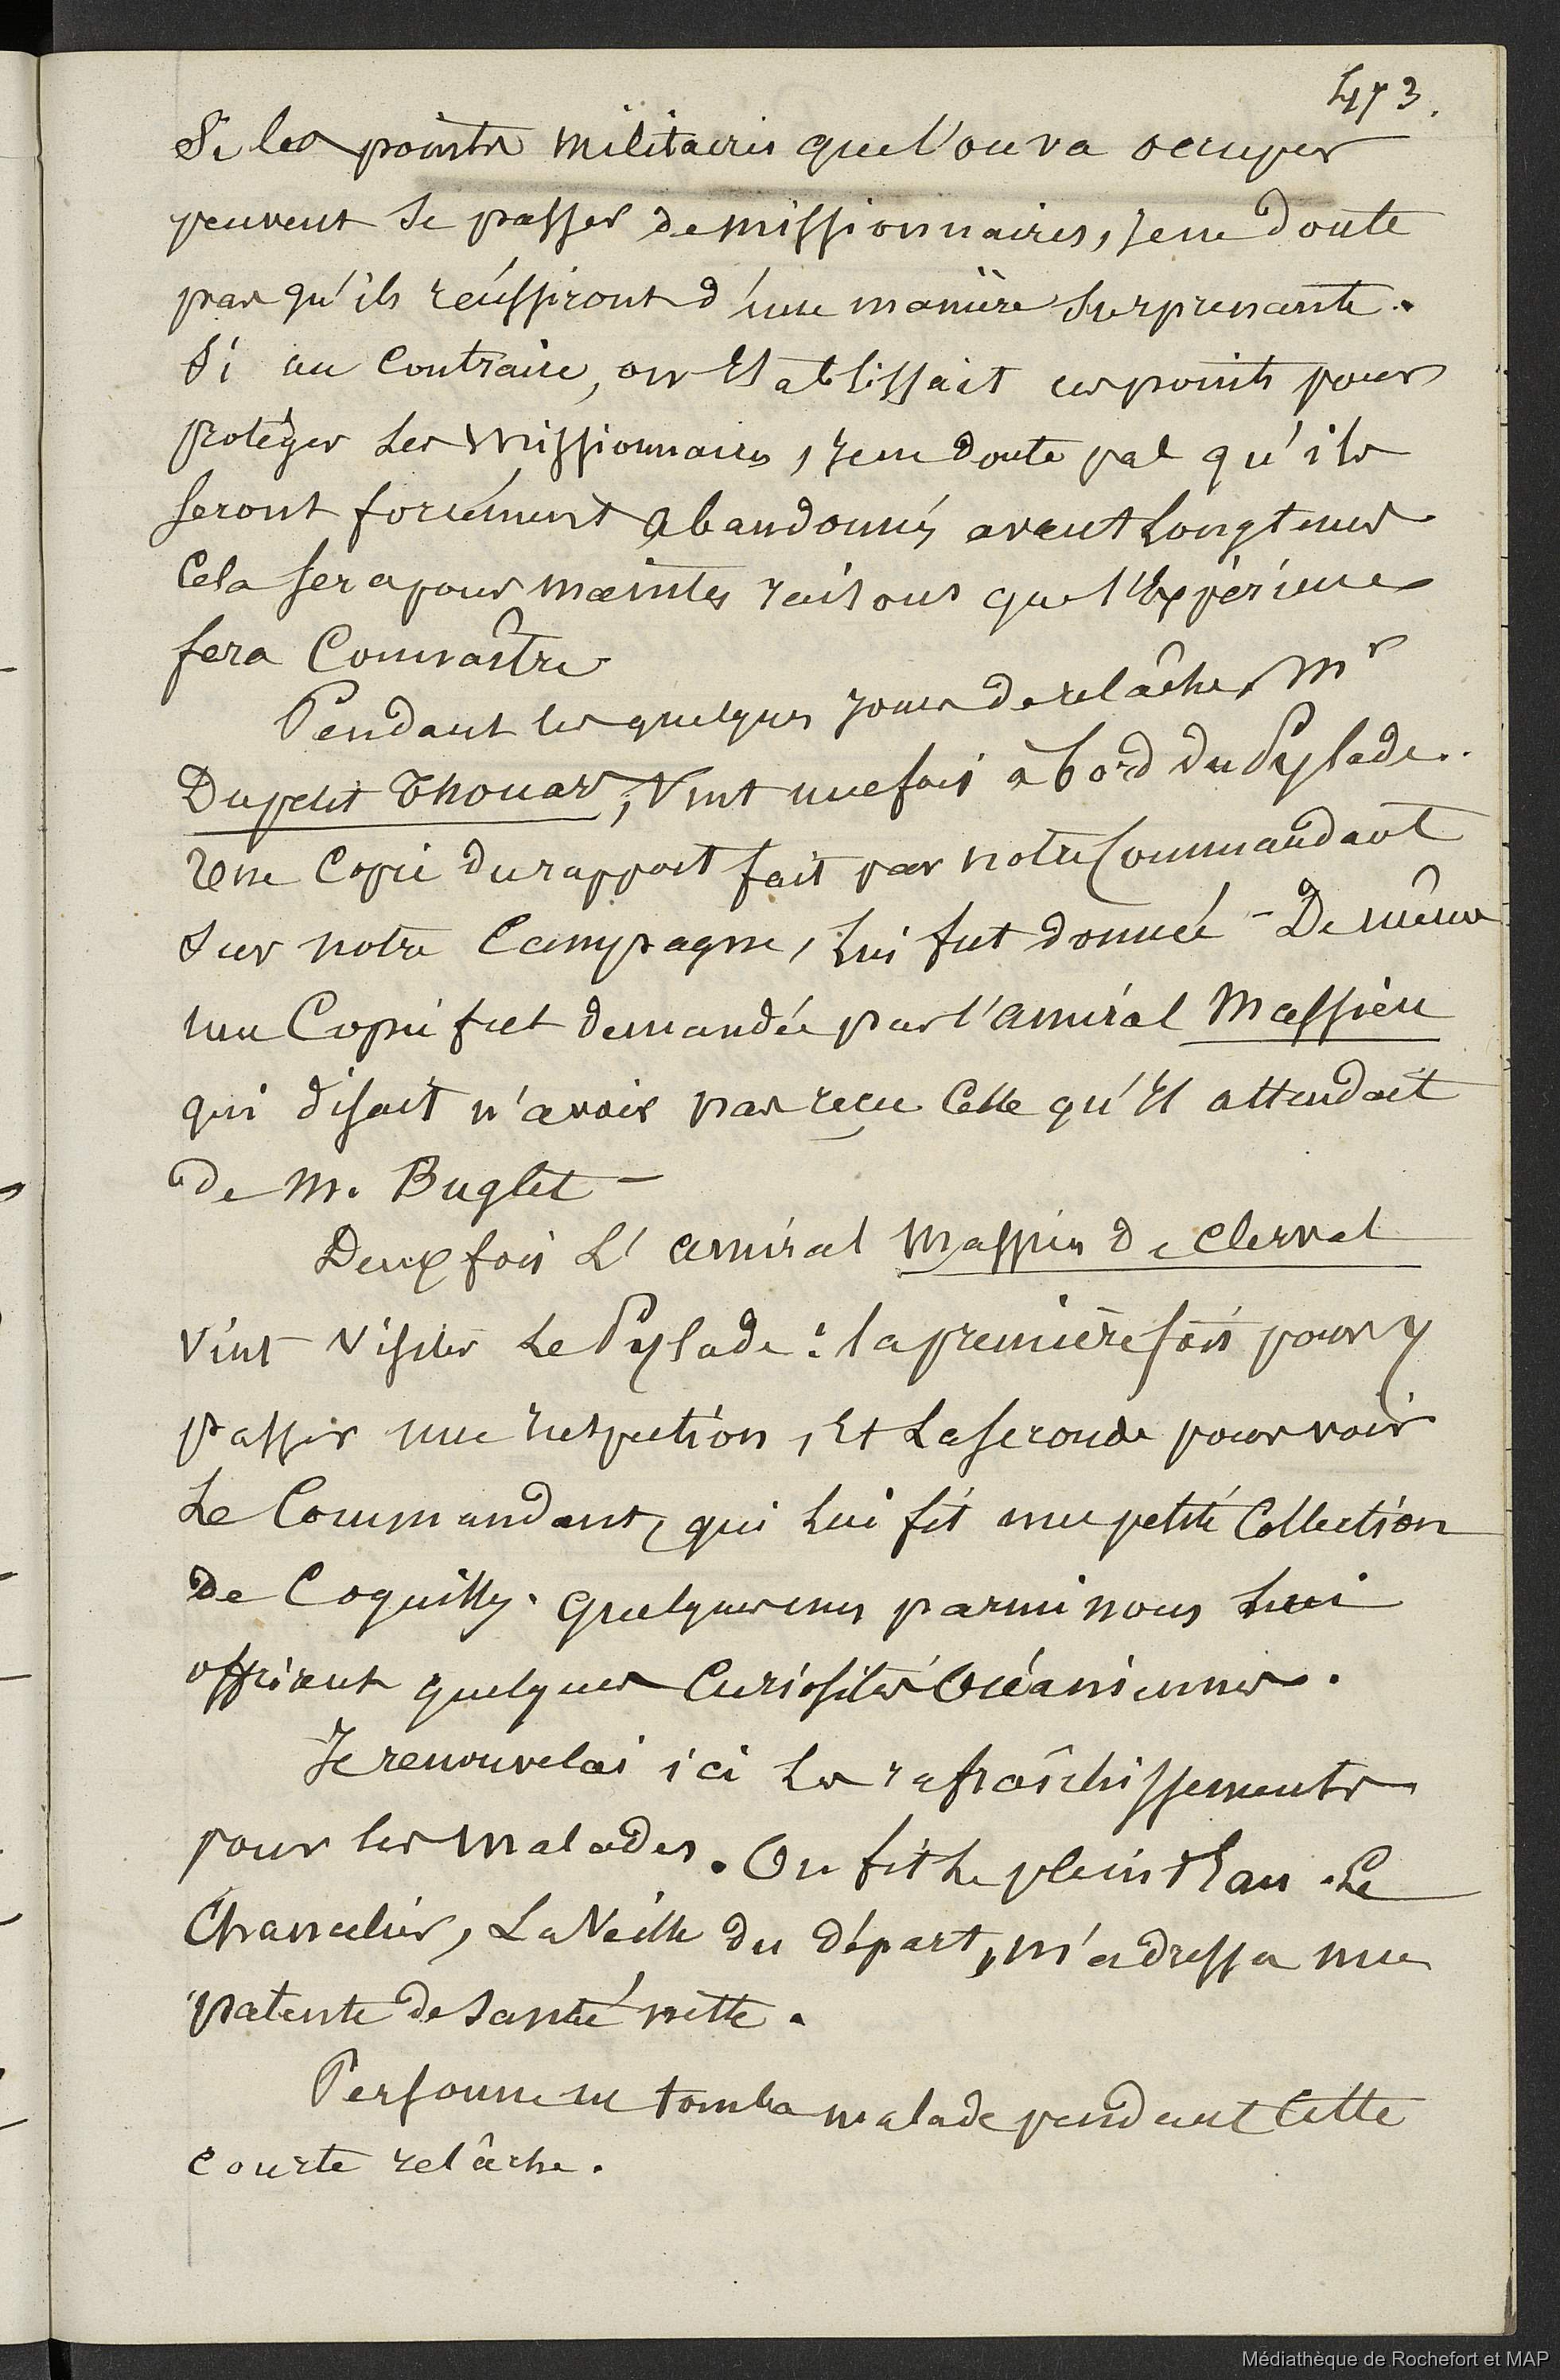 473.
Si les points militaires que l'on va occuper
peuvent se passer de missionnaires, je ne doute
pas qu'ils réussiront d'une manière surprenante.
Si au contraire, on Etablissait ces points pour
protéger Les Missionnaires, je ne doute pas qu'ils
seront forcément abandonnés avant Longtems
Cela sera pour maintes raisons que l'Expérience
fera Connaître
Pendant les quelques jours de relâche, Mr
Dupetit Thouars, Vint une fois à bord du Pylade.
Une Copie du rapport fait par notre Commandant
sur notre Campagne, Lui fut donnée - De même
une Copie fut demandée par l'amiral Massieu
qui disait n'avoir pas reçu Celle qu'il attendait
de M. Buglet -
Deux fois L'amiral Massieu de Clerval
Vint Visiter Le Pylade : la première fois pour y
passer une inspection, Et La seconde pour voir
Le Commandant, qui Lui fit une petite Collection
de Coquilles. Quelques uns parmi nous Lui
offrirent quelques Curiosités Océaniennes.
Je renouvelai ici Les rafraîchissements
pour les malades. On fit Le plein d'Eau. Le
Chancelier, La Veille du départ, m'adressa une
patente de santé nette.
Personne ne tomba malade pendant Cette
courte relâche.
Médiathèque de Rochefort et MAP